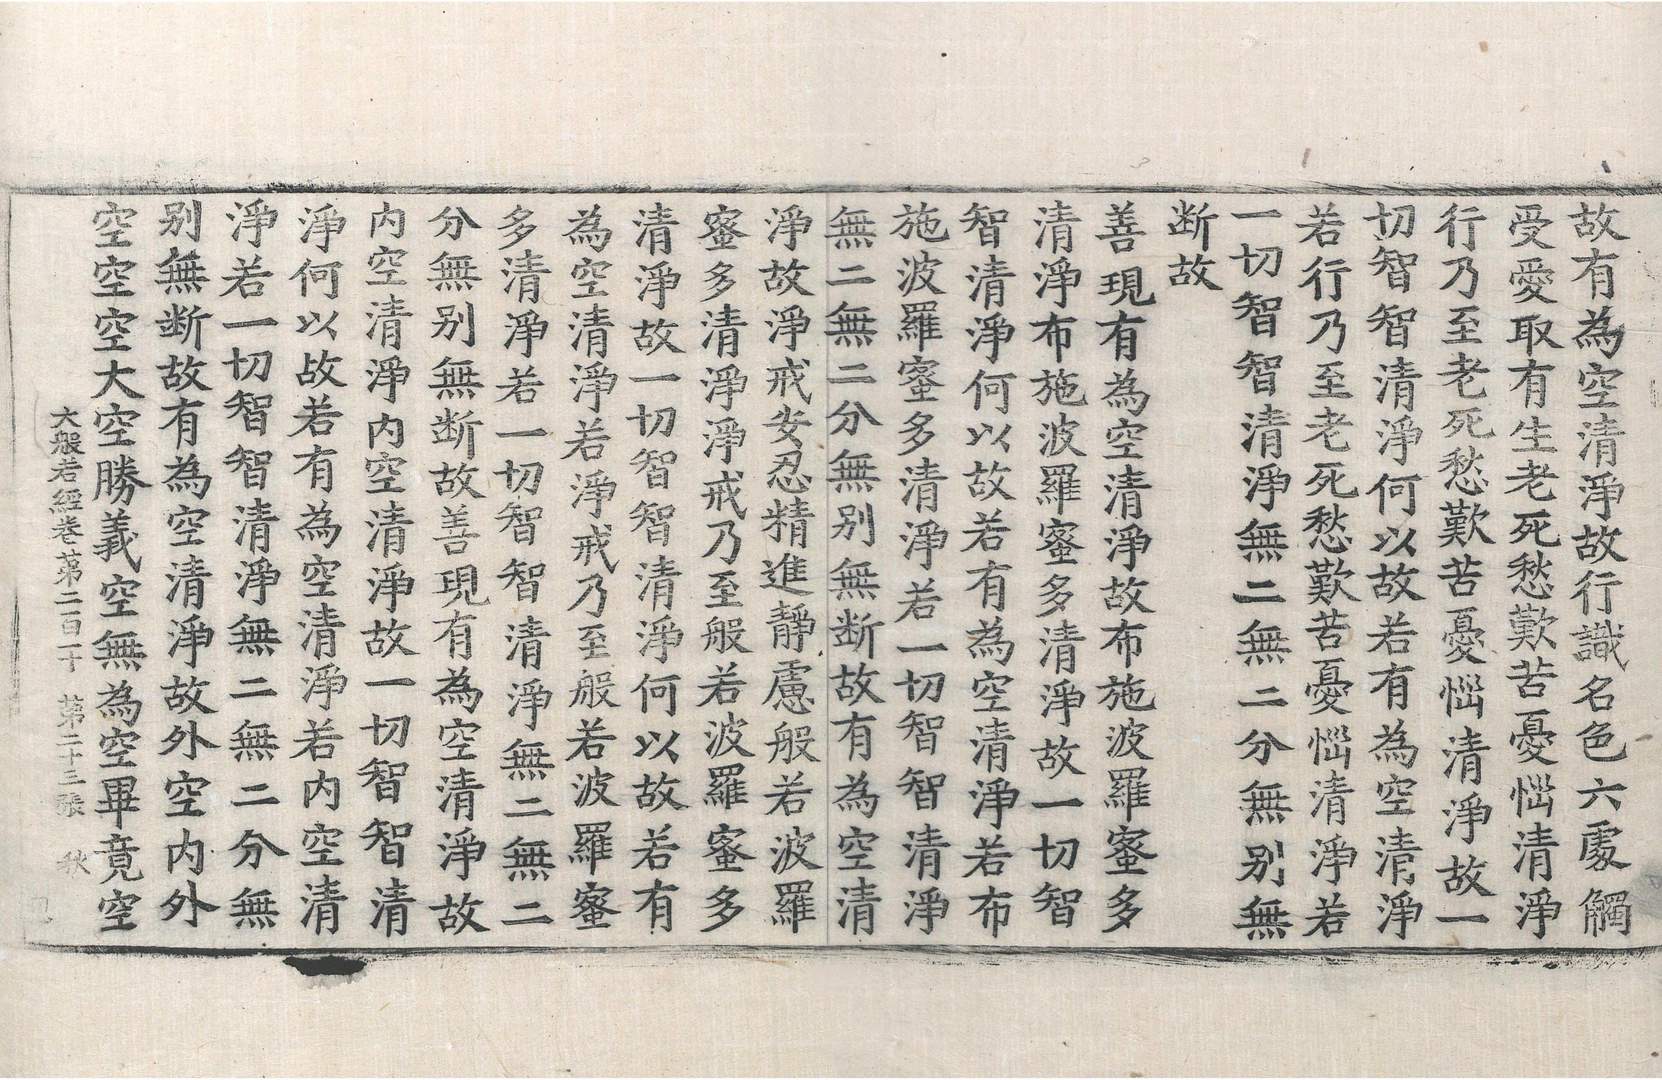 故有為空清淨故行識名色六處觸
受愛取有生老死愁歎苦憂惱清淨
行乃至老死愁歎苦憂惱清淨故一
切智智清淨何以故若有為空清淨
若行乃至老死愁歎苦憂惱清淨若
一切智智清淨無二無二分無別無
断故
善現有為空清淨故布施波羅蜜多
清淨布施波羅蜜多清淨故一切智
智清淨何以故若有為空清淨若布
施波羅蜜多清淨若一切智智清淨
無二無二分無別無断故有為空清
淨故淨戒安忍精進靜慮般若波羅
蜜多清淨淨戒乃至般若波羅蜜多
清淨故一切智智清淨何以故若有
為空清淨若淨戒乃至般若波羅蜜
多清淨若一切智智清淨無二無二
分無別無断故善現有為空清淨故
內空清淨內空清淨故一切智智清
淨何以故若有為空清淨若內空清
淨若一切智智清淨無二無二分無
別無断故有為空清淨故外空內外
空空空大空勝義空無為空畢竟空
大般若經卷第二百一十 第二十三張 秋